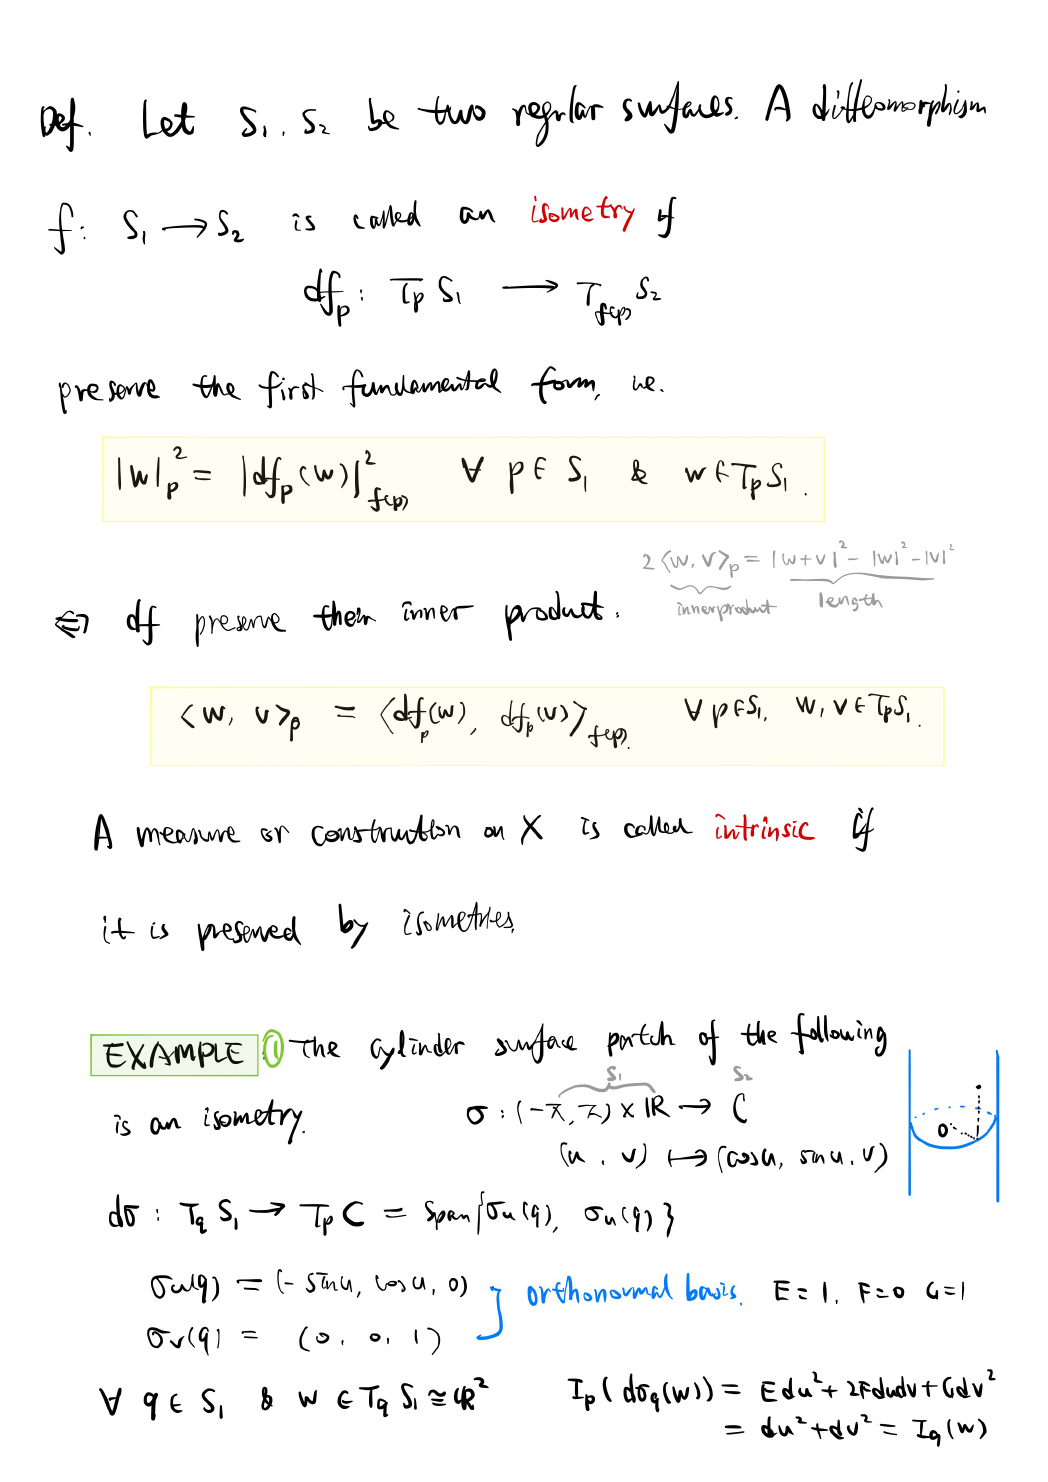 Def. Let S₁, S₂ be two regular surfaces. A diffeomorphism
f: S₁ → S₂ is called an isometry if
df_p : T_p S₁ → T_f(p) S₂
preserve the first fundamental form, i.e.
|w|²_p = |df_p(w)|²_f(p) ∀ p ∈ S₁ & w ∈ T_p S₁.
2⟨w, v⟩_p = |w+v|² - |w|² - |v|²
inner product length
⇔ df preserve their inner product.
⟨w, v⟩_p = ⟨df_p(w), df_p(v)⟩_f(p). ∀ p ∈ S₁, w, v ∈ T_p S₁.
A measure or construction on X is called intrinsic if
it is preserved by isometries.
EXAMPLE ① The cylinder surface patch of the following
S₁ S₂
is an isometry. σ : (-π, π) × ℝ → C
(u, v) ↦ (cosu, sinu, v)
0
dσ : T_q S₁ → T_p C = Span{σu(q), σu(q)}
σu(q) = (-sinu, cosu, 0)
orthonormal basis. E=1, F=0 G=1
σv(q) = (0, 0, 1)
∀ q ∈ S₁ & w ∈ T_q S₁ ≅ ℝ² I_p(dσ_q(w)) = Edu² + 2Fdudv + Gdv²
= du² + dv² = I_q(w)